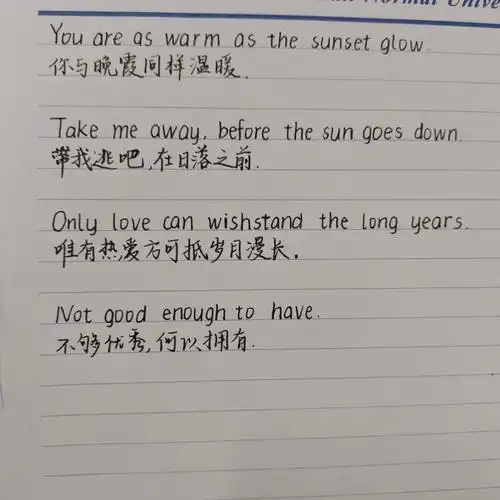 Normal Unive
You are as warm as the sunset glow.
你与晚霞同样温暖.
Take me away, before the sun goes down.
带我逃吧,在日落之前.
Only love can wishstand the long years.
唯有热爱方可抵岁月漫长.
Not good enough to have.
不够优秀,何以拥有.